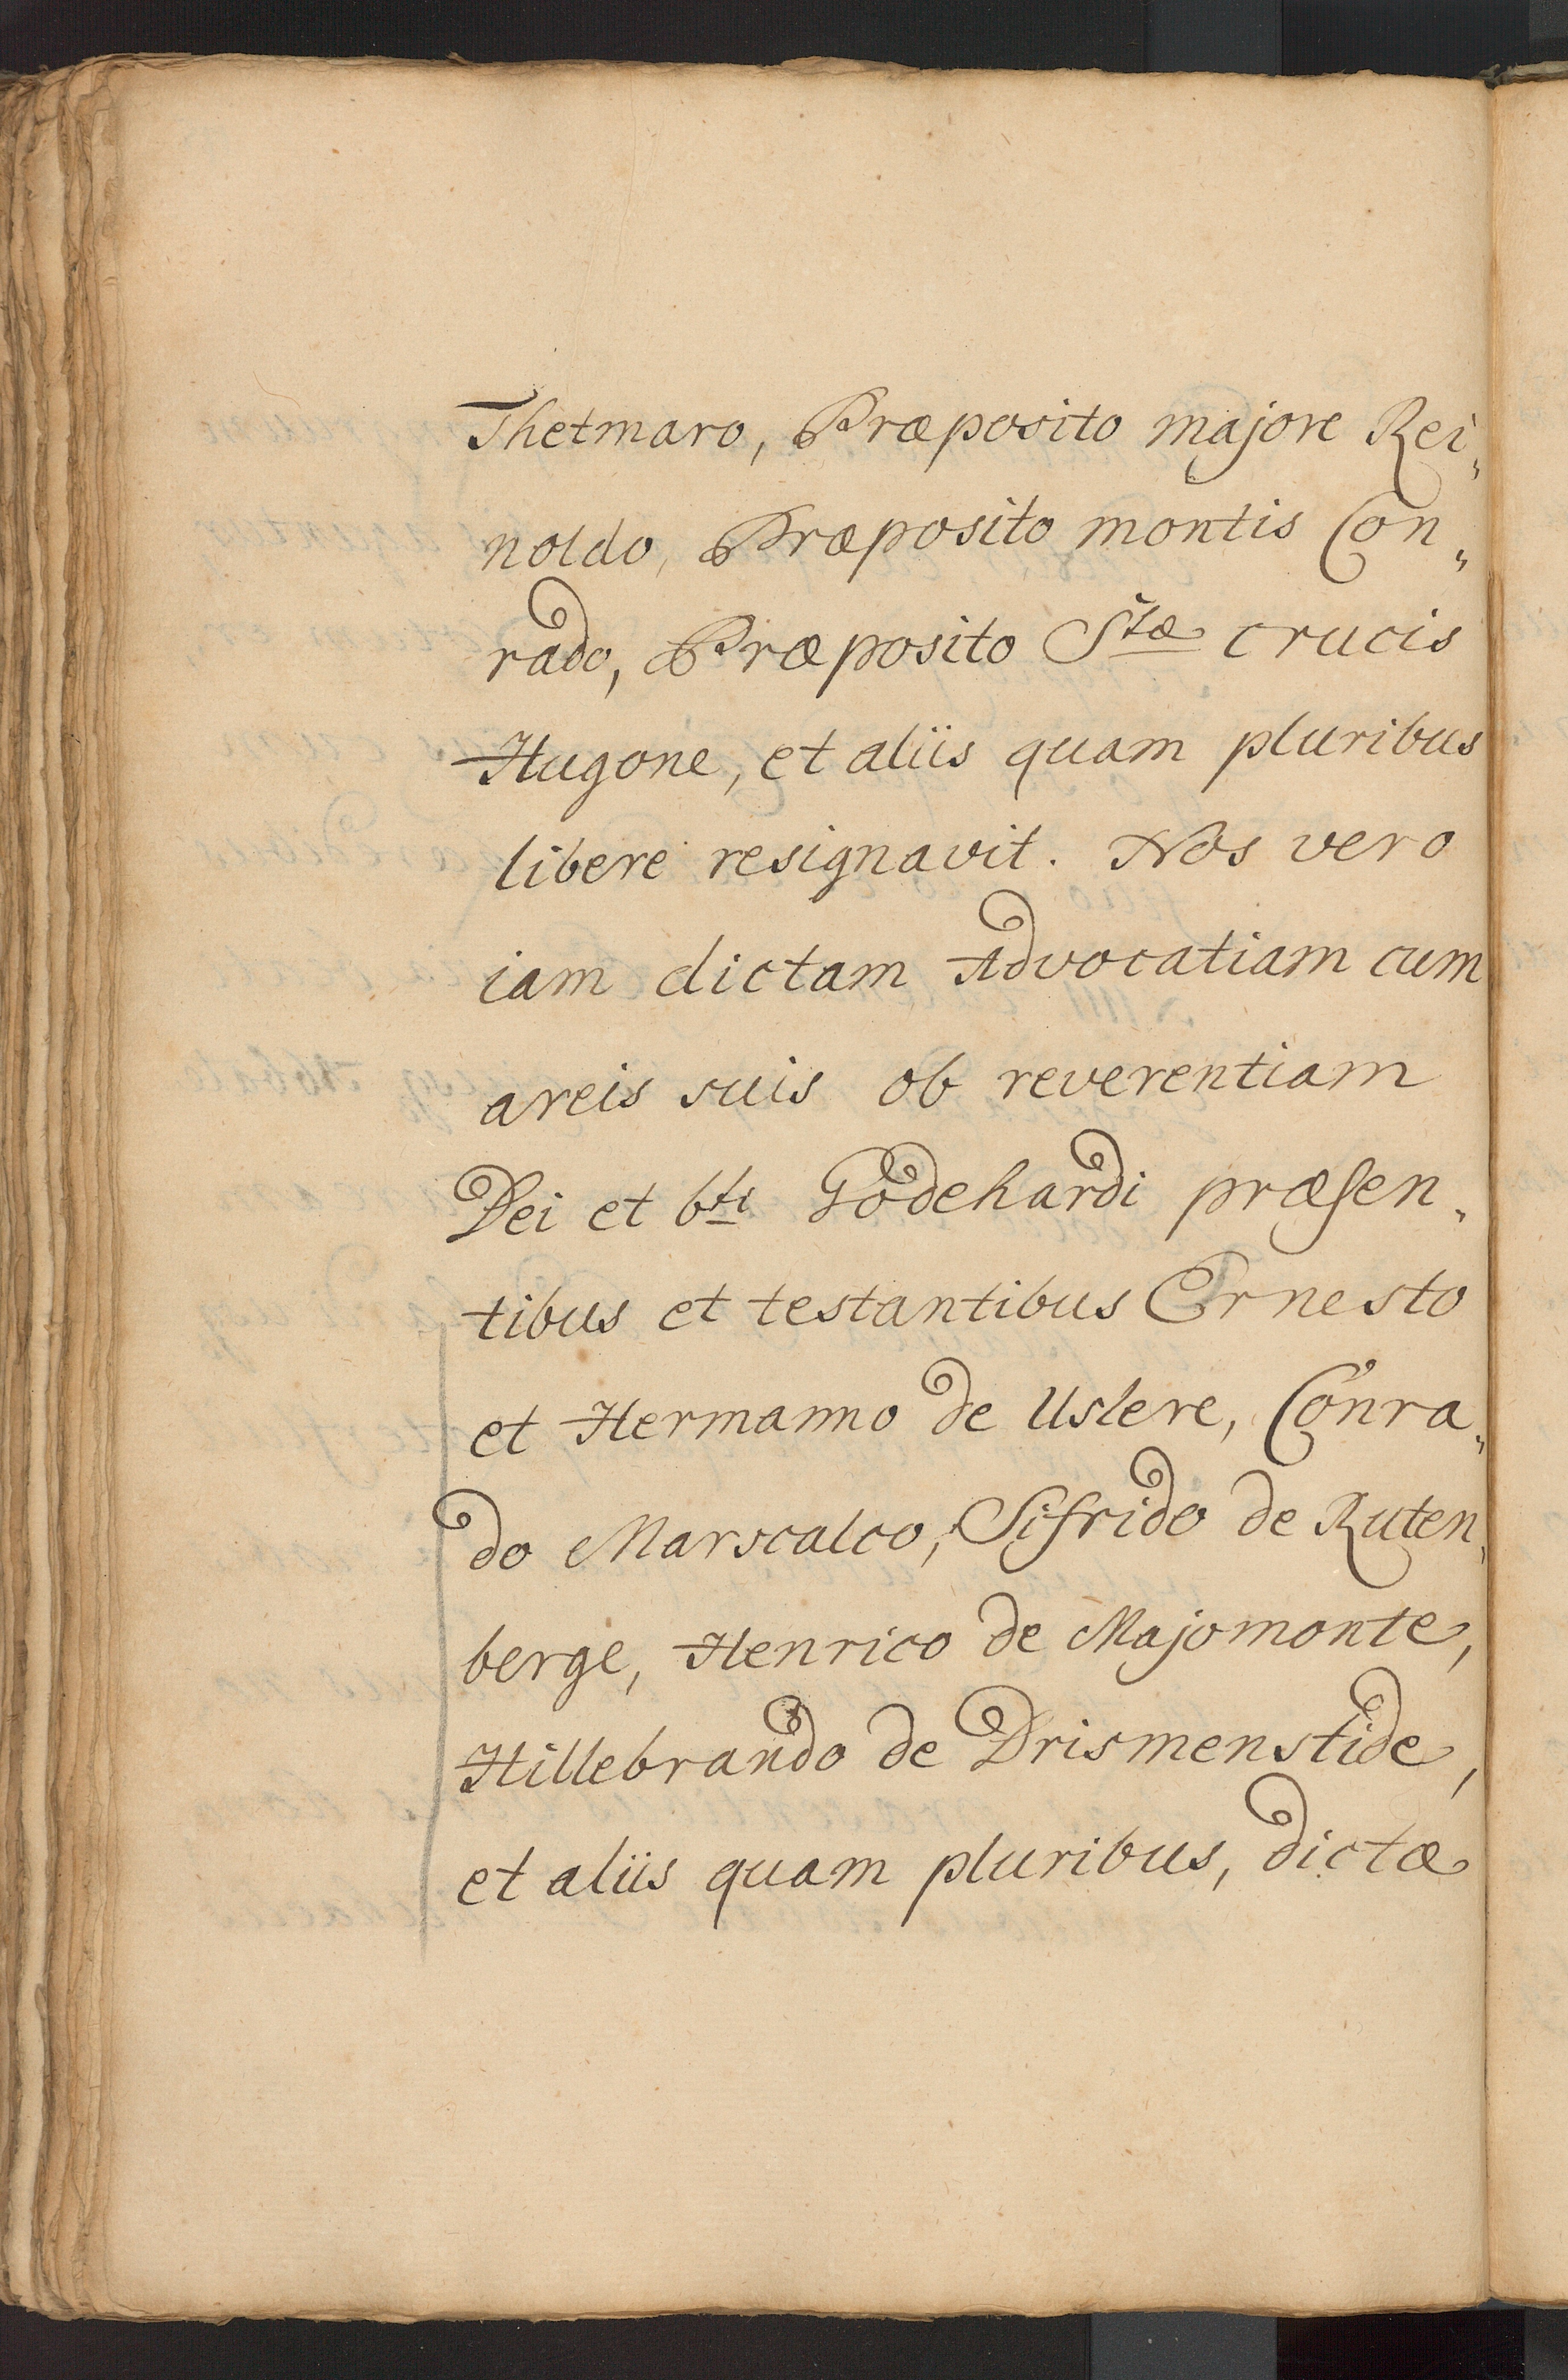 Thetmaro, Præposito majore Rei„
noldo, Præposito montis Con„
rado, Præposito Stæ crucis
Hugone, et aliis quam pluribus
libere resignavit. Nos vero
iam dictam Advocatiam cum
areis suis ob reverentiam
Dei et bti Godehardi præsen„
tibus et testantibus Ernesto
et Hermanno de Uslere, Conra„
do Marscalco, Sifrido de Ruten„
berge, Henrico de Majomonte,
Hillebrando de Drismenstide,
et aliis quam pluribus, dictæ